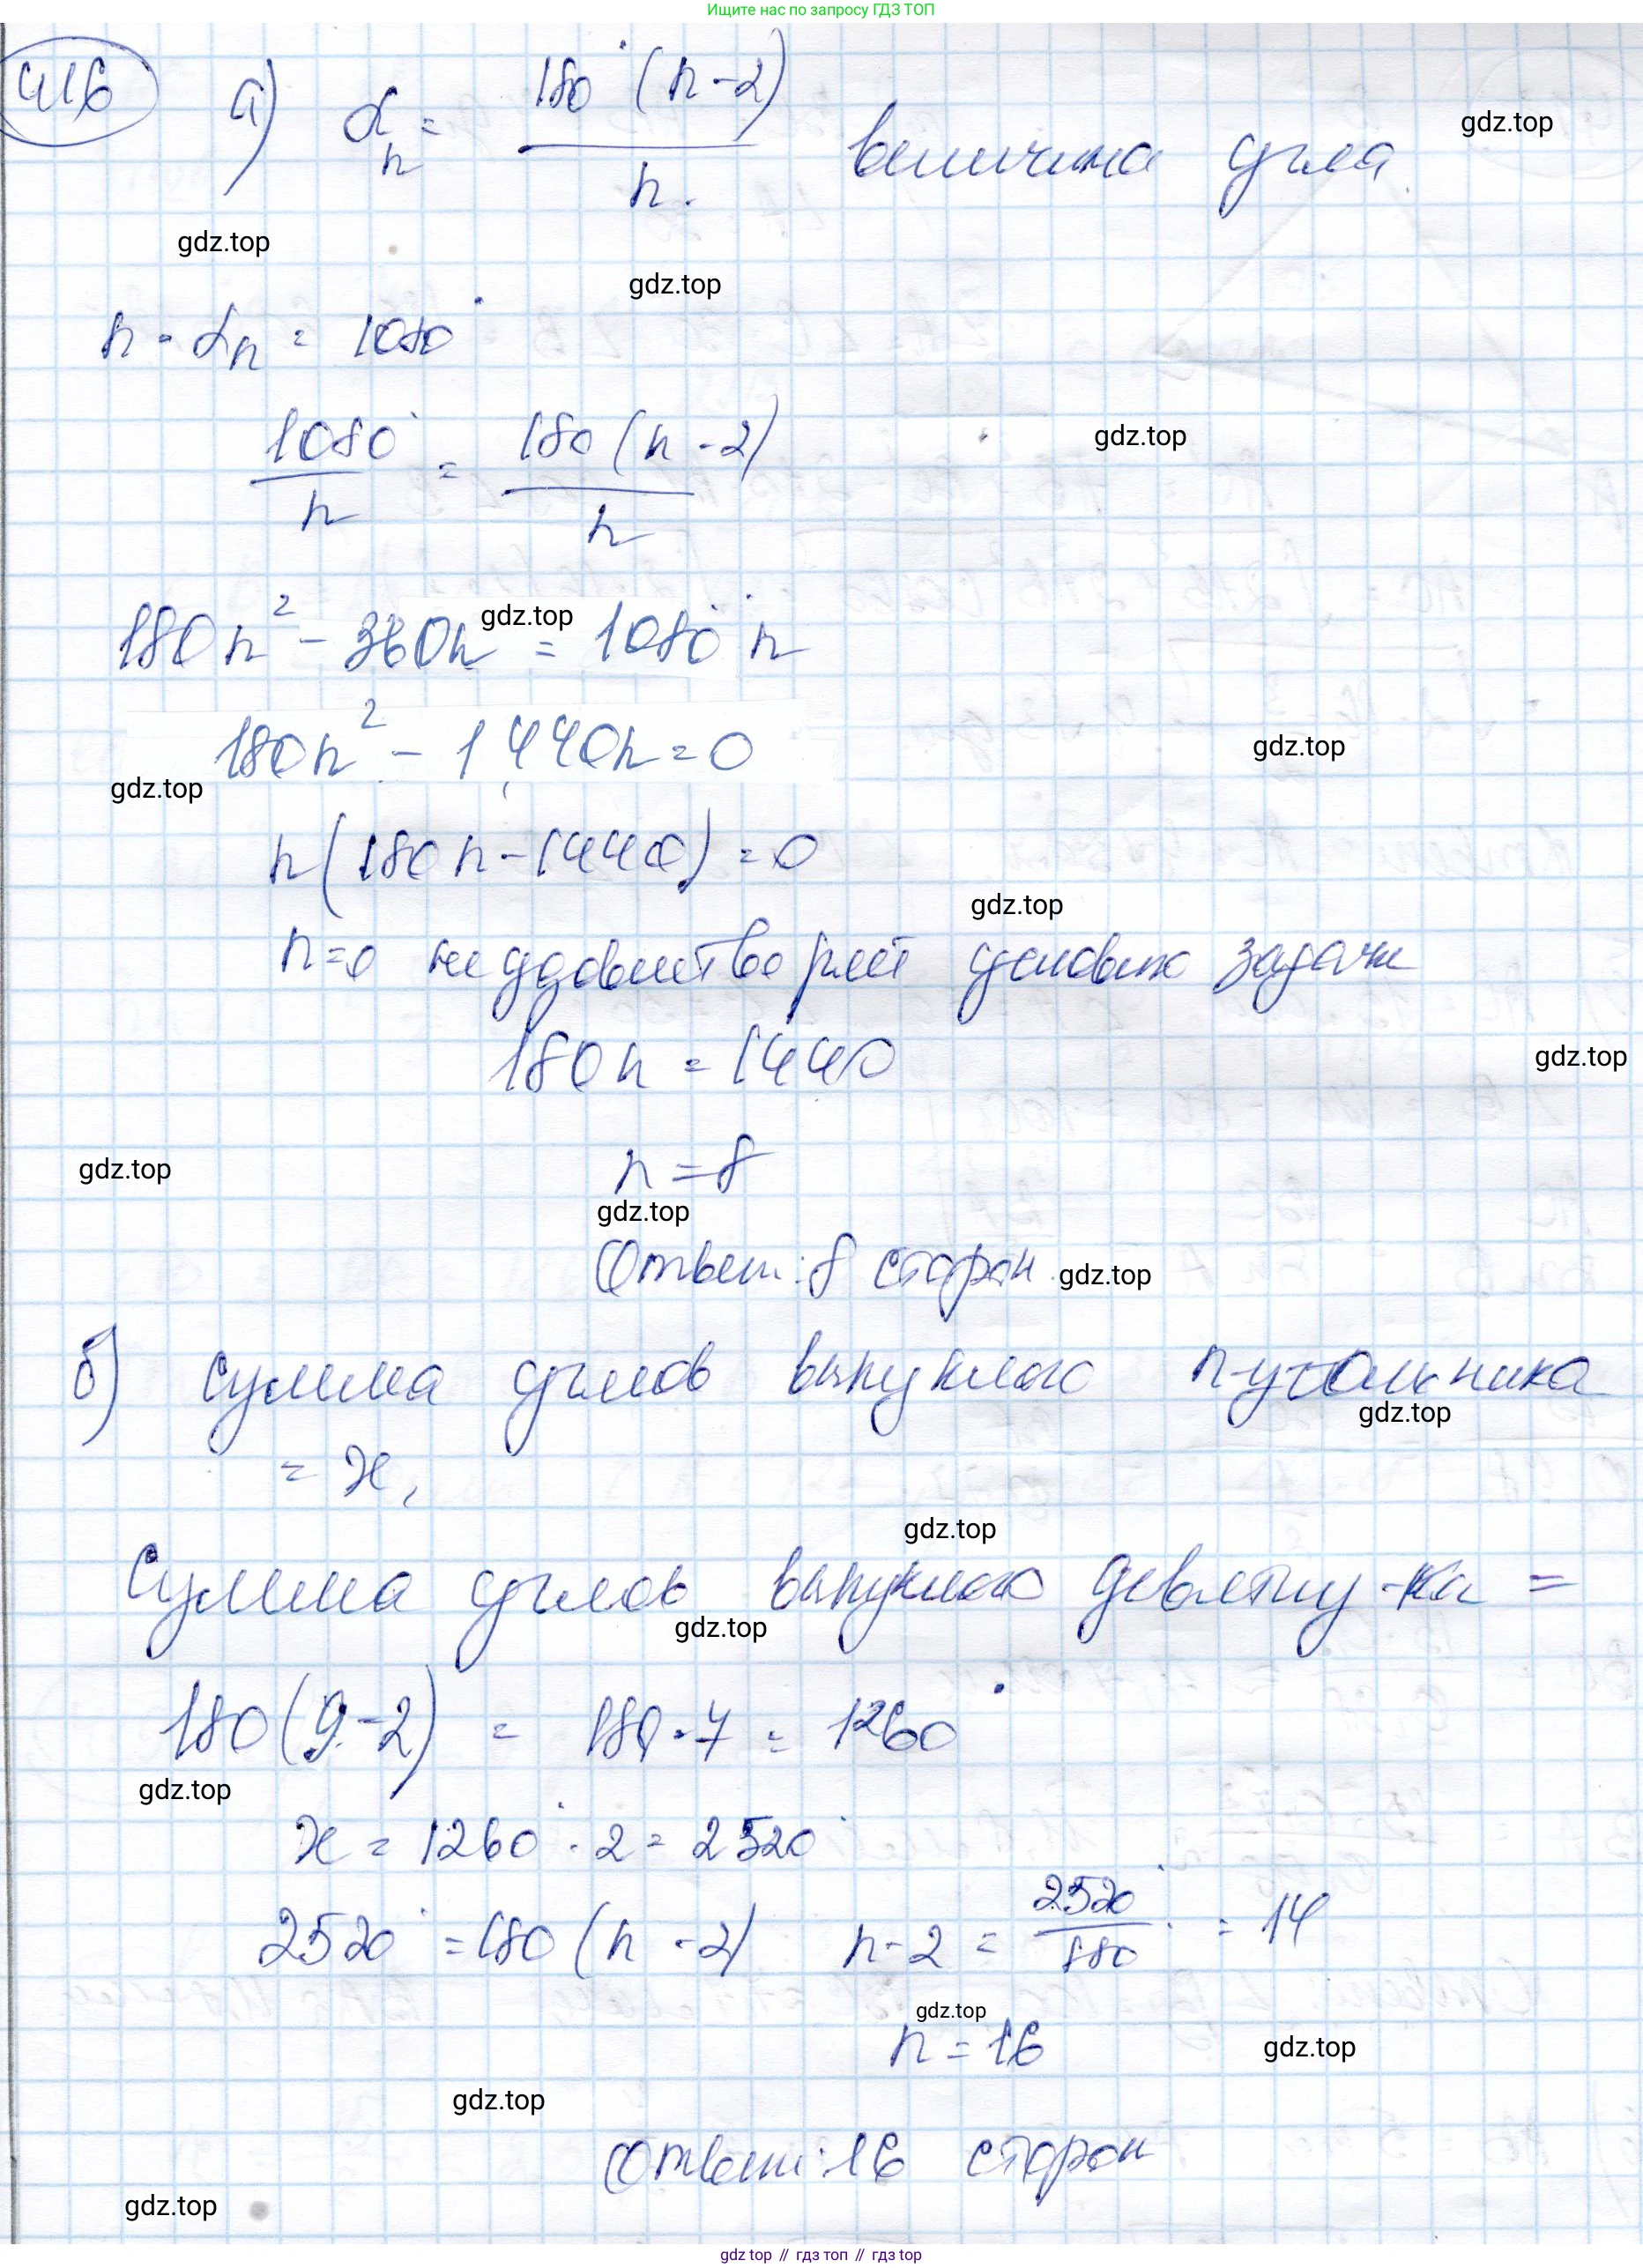 Ищите нас по запросу ГДЗ ТОП
416 а) αₙ = 180°(n-2) / n. величина угла.
gdz.top
gdz.top
gdz.top
n · αₙ = 1080°
1080° / n = 180(n-2) / n
gdz.top
180n² - 360n = 1080° n
gdz.top
180n² - 1440n = 0
gdz.top
gdz.top
n(180n - 1440) = 0
gdz.top
n=0 не удовлетворяет условию задачи
180n = 1440
gdz.top
n = 8
gdz.top
gdz.top
Ответ: 8 сторон.
gdz.top
б) сумма углов выпуклого n-угольника
gdz.top
= x,
gdz.top
Сумма углов выпуклого девятиу-ка =
gdz.top
180(9-2) = 180·7 = 1260°
gdz.top
x = 1260° · 2 = 2520°
2520° = 180(n-2) n-2 = 2520° / 180° = 14
gdz.top
n = 16
gdz.top
gdz.top
Ответ: 16 сторон
gdz.top
gdz.top // гдз топ // гдз top